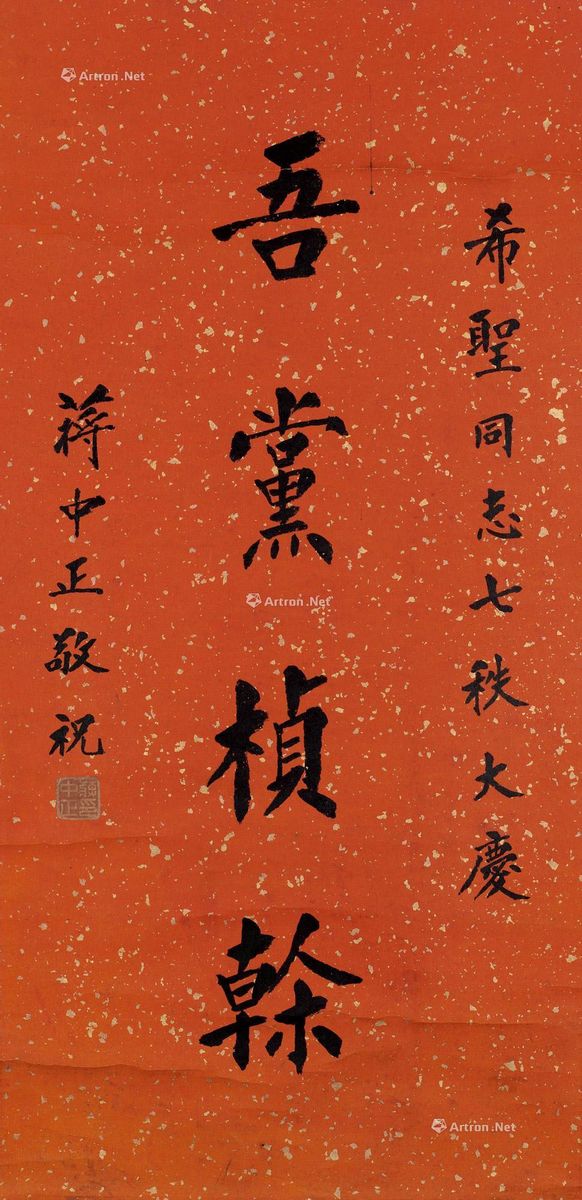 希聖同志七秩大慶
吾黨楨榦
蔣中正敬祝
Artron.Net
Artron.Net
Artron.Net